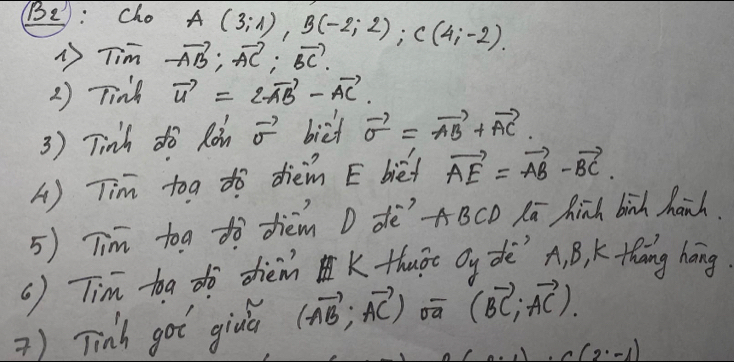 B2: Cho A (3;1), B(-2;2); C(4;-2).
1) Tìm AB; AC; BC.
2) Tính u = 2AB - AC.
3) Tính độ lớn v biết v = AB + AC.
4) Tìm toạ độ điểm E biết AE = AB - BC.
5) Tìm toạ độ điểm D để ABCD là hình bình hành.
6) Tìm toạ độ điểm K thuộc Oy để A, B, K thẳng hàng.
7) Tính góc giữa (AB; AC) và (BC; AC).